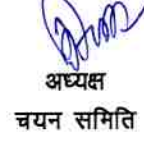 अध्यक्ष
चयन समिति